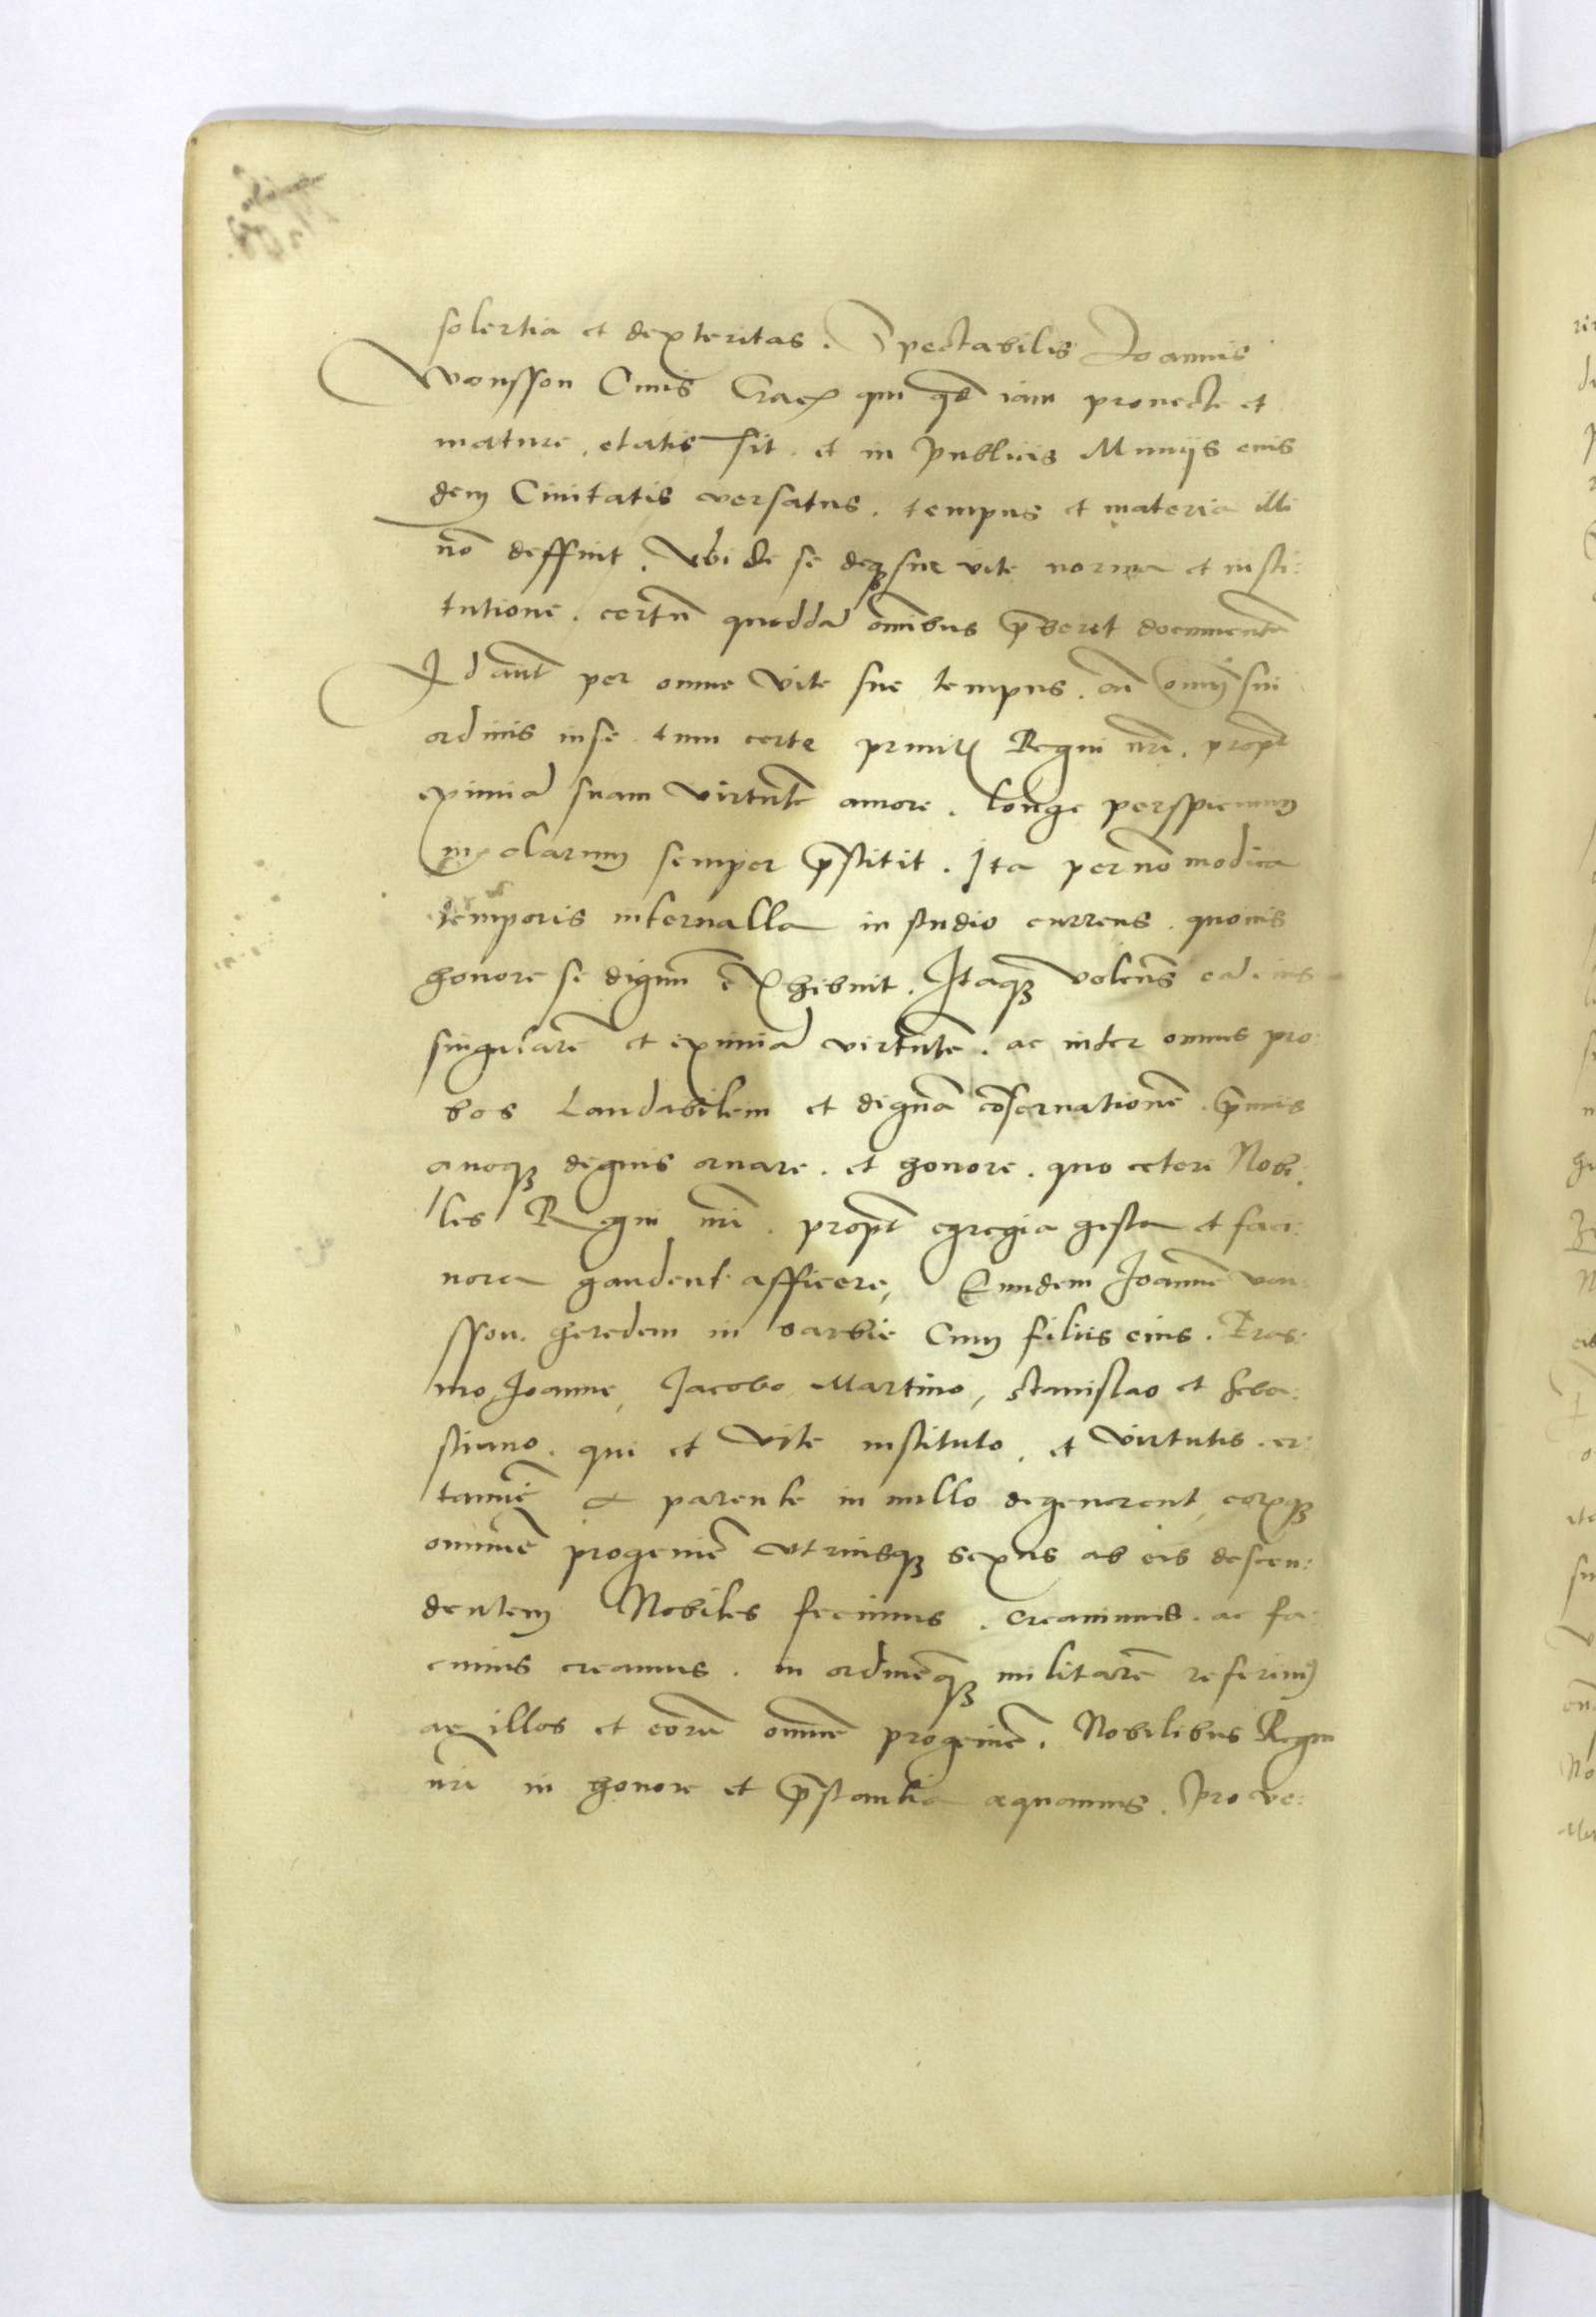 solertia et dexteritas. Spectabilis Joannis
Wonsson Ciuis Crac qui qd iam prouecte et
mature etatis sit. et in publicis Munijs eius
dem Ciuitatis versatus. tempus et materia illi
nõ deffuit. Vbi de se deqz sue vite norma et insti:
tutione. certũ quoddã õmibus p̃beret documentũ
Id aũt per omne vite sue tempus. cũ sui
ordinis in se tum certe Regni nr̃i. propt̃
eximiã suam virtutẽ amore. longe perspicuum
clarum semper p̃stitit. Ita per nõ modica
temporis interualla in studio currens. quouis
honore se dignũ exhibuit. Itaqz volens eius
singularẽ et eximiã virtutẽ. ac inter omnes pro:
bos Laudabilem et dignã cõseruationẽ. p̃mijs
dignis ornare. et honore. quo ceteri Nobi:
les Regni nr̃i. propt̃ egregia gesta et faci:
nora gaudent afficere, Eundem Joannẽ von:
sson. heredem in barbie Cum filiis eius. Eras:
mo, Joanne, Jacobo Martino, Stanislao et Seba:
stiano. qui et vite instituto, et virtutis. cer:
tamiẽ a parente in nullo degenerent, eorqz
omnẽ progeniẽ vtriusqz sexus ab eis descen:
dentem Nobiles fecimus. creauimus. ac fa:
cimus creamus. in ordinẽqz militarẽ referimus
ac illos et eorũ omnẽ progeniẽ. Nobilibus Regni
nr̃i in honore et p̃stantia æquamus. Pro ve: